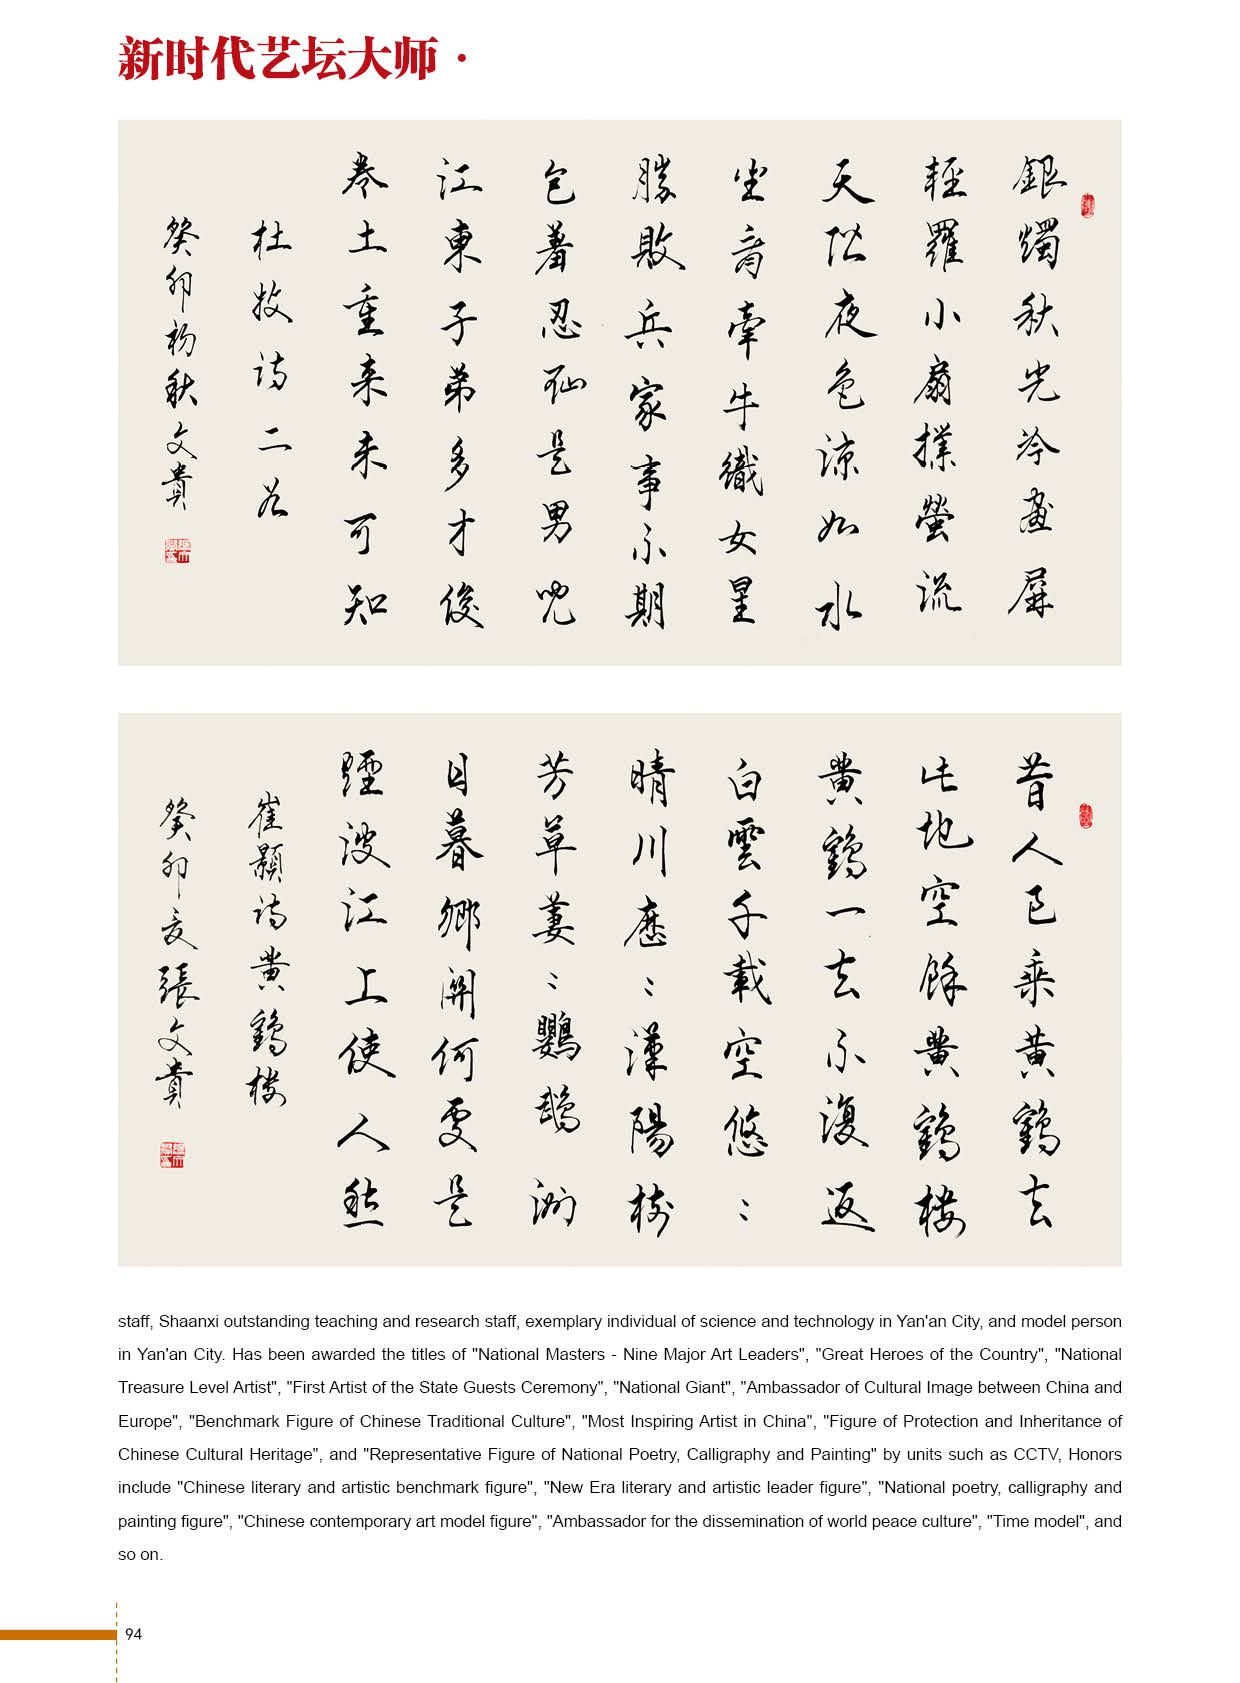 新时代艺坛大师·
銀燭秋光冷畫屏
輕羅小扇撲螢流
天階夜色涼如水
坐看牽牛織女星
勝敗兵家事不期
包羞忍恥是男兒
江東子弟多才俊
卷土重来未可知
杜牧诗二首
癸卯初秋文貴
昔人已乘黄鶴去
此地空餘黄鶴楼
黄鶴一去不復返
白雲千載空悠〻
晴川歷〻漢陽樹
芳草萋〻鸚鵡洲
日暮鄉關何處是
煙波江上使人愁
崔顥诗黄鶴楼
癸卯夏張文貴
staff, Shaanxi outstanding teaching and research staff, exemplary individual of science and technology in Yan'an City, and model person
in Yan'an City. Has been awarded the titles of "National Masters - Nine Major Art Leaders", "Great Heroes of the Country", "National
Treasure Level Artist", "First Artist of the State Guests Ceremony", "National Giant", "Ambassador of Cultural Image between China and
Europe", "Benchmark Figure of Chinese Traditional Culture", "Most Inspiring Artist in China", "Figure of Protection and Inheritance of
Chinese Cultural Heritage", and "Representative Figure of National Poetry, Calligraphy and Painting" by units such as CCTV, Honors
include "Chinese literary and artistic benchmark figure", "New Era literary and artistic leader figure", "National poetry, calligraphy and
painting figure", "Chinese contemporary art model figure", "Ambassador for the dissemination of world peace culture", "Time model", and
so on.
94